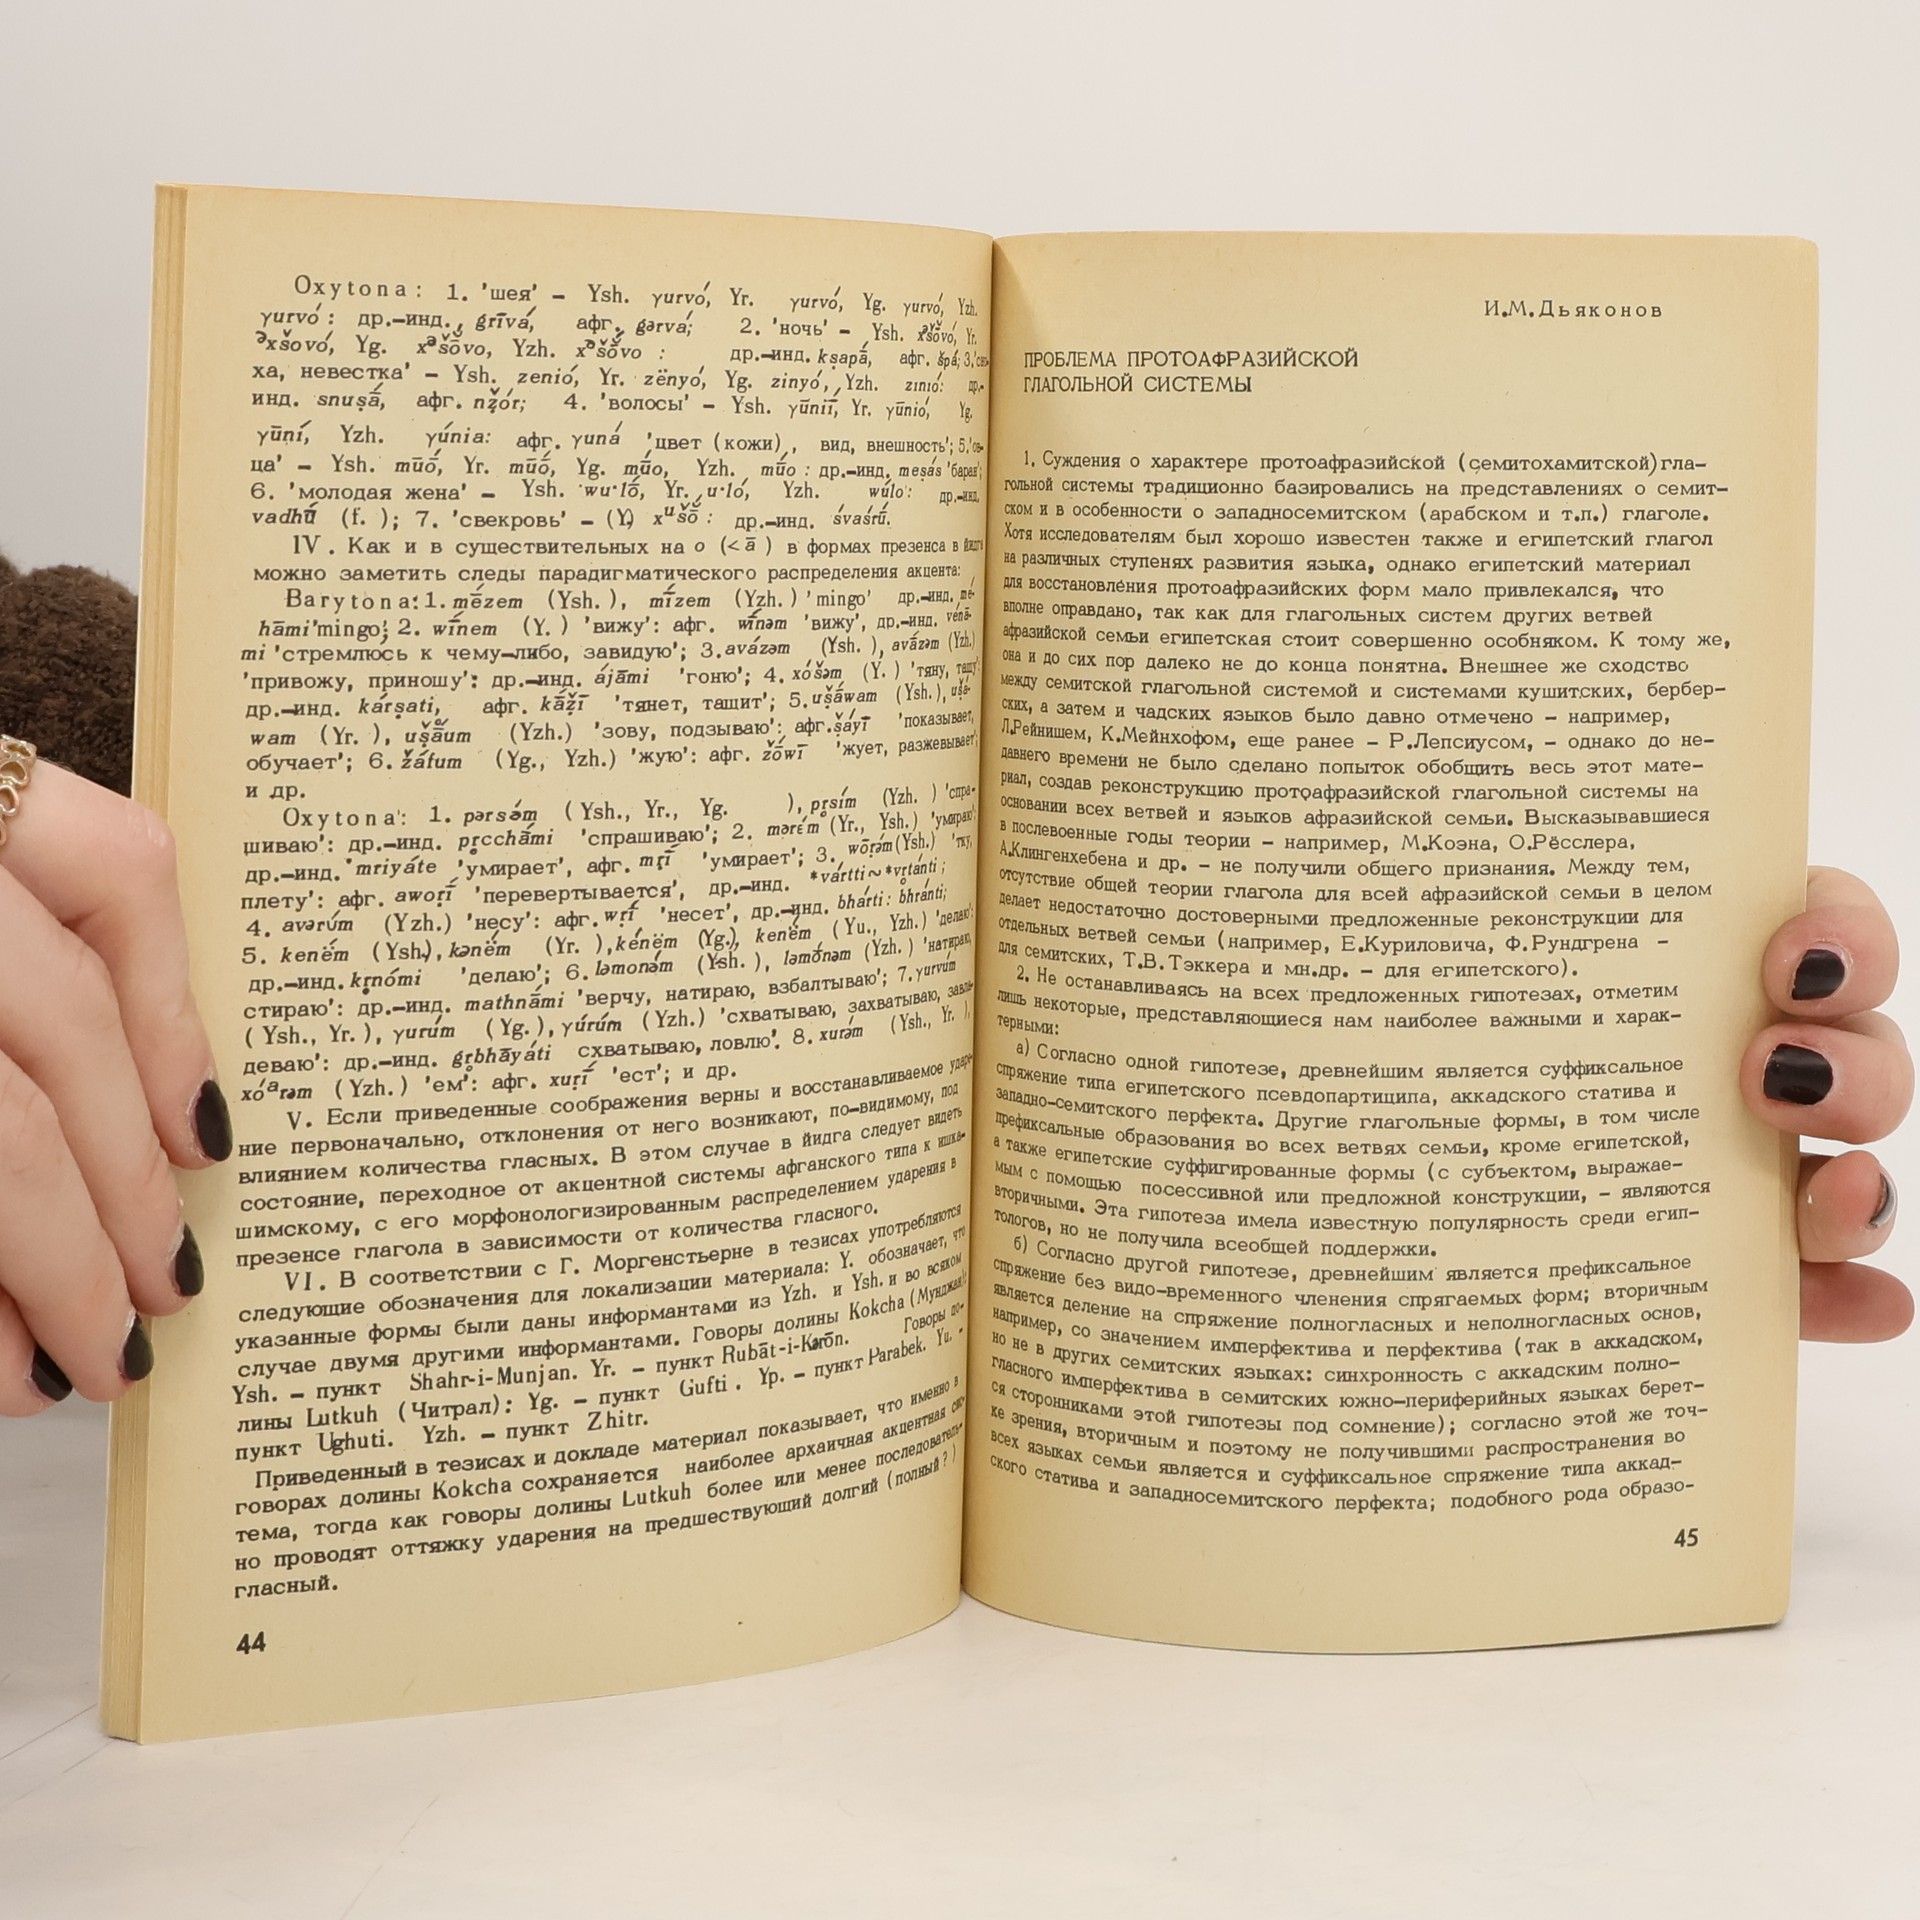 Oxytona: 1. 'шея' – Ysh. γurvó, Yr. γurvó, Yg. γurvó, Yzh.
γurvó : др.–инд. grīvá, афг. gərvá; 2. 'ночь' – Ysh. Yr.
Yg. Yzh. др.–инд. kṣapā́, афг. špá; 3.
ха, невестка' – Ysh. zenió, Yr. zënyó, Yg. zinyó, Yzh. zinió: др.–
инд. snuṣā́, афг. nẓ̌ór; 4. 'волосы' – Ysh. Yr. γūnió, Yg.
γūní, Yzh. γúnia: афг. γuná 'цвет (кожи), вид, внешность'; 5. 'ов–
ца' – Ysh. mūṓ, Yr. mūṓ, Yg. mū́o, Yzh. mū́o : др.–инд. meṣás 'баран';
6. 'молодая жена' – Ysh. wu·lṓ, Yr. u·ló, Yzh. wúlo: др.–инд.
vadhū́ (f. ); 7. 'свекровь' – (Y.) xᵘšṓ : др.–инд. śvaśrū́.
IV. Как и в существительных на о (< ā ) в формах презенса в йидга
можно заметить следы парадигматического распределения акцента:
Barytona: 1. mḗzem (Ysh. ), mī́zem (Yzh. ) 'mingo' др.–инд. mé–
hāmi 'mingo'; 2. wī́nem (Y. ) 'вижу': афг. wī́nəm 'вижу', др.–инд. vénā–
mi 'стремлюсь к чему–либо, завидую'; 3. avázəm (Ysh. ), avā́zəm (Yzh.)
'привожу, приношу': др.–инд. ájāmi 'гоню'; 4. xóšəm (Y. ) 'тяну, тащу':
др.–инд. kárṣati, афг. kā́ẓ̌ī 'тянет, тащит'; 5. uṣ̌ā́wam (Ysh. ), uṣ̌á–
wam (Yr. ), (Yzh.) 'зову, подзываю': афг. ṣ̌áyī 'показывает,
обучает'; 6. žáfum (Yg., Yzh.) 'жую': афг. žṓwī 'жует, разжевывает';
и др.
Oxytona: 1. pərsə́m ( Ysh., Yr., Yg. ), pṛsím (Yzh. ) 'спра–
шиваю': др.–инд. pṛcchā́mi 'спрашиваю'; 2. (Yr., Ysh. ) 'умираю':
др.–инд. mriyáte 'умирает', афг. mṛī́ 'умирает'; 3. wōṛə́m (Ysh. ) 'тку,
плету': афг. awoṛī́ 'перевертывается', др.–инд. *vártti ~ *vṛtánti ;
4. avərúm (Yzh.) 'несу': афг. wṛī́ 'несет', др.–инд. bhárti: bhránti;
5. kenë́m (Ysh.), kənë́m (Yr. ), kénëm (Yg.), kenë́m (Yu., Yzh.) 'делаю':
др.–инд. kṛnómi 'делаю'; 6. ləmonə́m (Ysh. ), ləmṓnəm (Yzh. ) 'натираю,
стираю': др.–инд. mathnā́mi 'верчу, натираю, взбалтываю'; 7. γurvúm
( Ysh., Yr. ), γurúm (Yg. ), γúrúm (Yzh. ) 'схватываю, захватываю, завла–
деваю': др.–инд. gṛbhāyáti схватываю, ловлю'. 8. xurə́m (Ysh., Yr. ),
xóᵃrəm (Yzh. ) 'ем': афг. xuṛī́ 'ест'; и др.
V. Если приведенные соображения верны и восстанавливаемое ударе–
ние первоначально, отклонения от него возникают, по–видимому, под
влиянием количества гласных. В этом случае в йидга следует видеть
состояние, переходное от акцентной системы афганского типа к ишка–
шимскому, с его морфонологизированным распределением ударения в
презенсе глагола в зависимости от количества гласного.
VI. В соответствии с Г. Моргенстьерне в тезисах употребляются
следующие обозначения для локализации материала: Y. обозначает, что
указанные формы были даны информантами из Yzh. и Ysh. и во всяком
случае двумя другими информантами. Говоры долины Kokcha (Мунджан):
Ysh. – пункт Shahr-i-Munjan. Yr. – пункт Rubāt-i-Karōn. Говоры до–
лины Lutkuh (Читрал): Yg. – пункт Gufti . Yp. – пункт Parabek. Yu. –
пункт Ughuti. Yzh. – пункт Zhitr.
Приведенный в тезисах и докладе материал показывает, что именно в
говорах долины Kokcha сохраняется наиболее архаичная акцентная сис–
тема, тогда как говоры долины Lutkuh более или менее последователь–
но проводят оттяжку ударения на предшествующий долгий (полный?)
гласный.
44
И.М.Дьяконов
ПРОБЛЕМА ПРОТОАФРАЗИЙСКОЙ
ГЛАГОЛЬНОЙ СИСТЕМЫ
1. Суждения о характере протоафразийской (семитохамитской) гла–
гольной системы традиционно базировались на представлениях о семит–
ском и в особенности о западносемитском (арабском и т.п.) глаголе.
Хотя исследователям был хорошо известен также и египетский глагол
на различных ступенях развития языка, однако египетский материал
для восстановления протоафразийских форм мало привлекался, что
вполне оправдано, так как для глагольных систем других ветвей
афразийской семьи египетская стоит совершенно особняком. К тому же,
она и до сих пор далеко не до конца понятна. Внешнее же сходство
между семитской глагольной системой и системами кушитских, бербер–
ских, а затем и чадских языков было давно отмечено – например,
Л.Рейнишем, К.Мейнхофом, еще ранее – Р.Лепсиусом, – однако до не–
давнего времени не было сделано попыток обобщить весь этот мате–
риал, создав реконструкцию протоафразийской глагольной системы на
основании всех ветвей и языков афразийской семьи. Высказывавшиеся
в послевоенные годы теории – например, М.Коэна, О.Рёсслера,
А.Клингенхебена и др. – не получили общего признания. Между тем,
отсутствие общей теории глагола для всей афразийской семьи в целом
делает недостаточно достоверными предложенные реконструкции для
отдельных ветвей семьи (например, Е.Куриловича, Ф.Рундгрена –
для семитских, Т.В.Тэккера и мн.др. – для египетского).
2. Не останавливаясь на всех предложенных гипотезах, отметим
лишь некоторые, представляющиеся нам наиболее важными и харак–
терными:
а) Согласно одной гипотезе, древнейшим является суффиксальное
спряжение типа египетского псевдопартиципа, аккадского статива и
западно–семитского перфекта. Другие глагольные формы, в том числе
префиксальные образования во всех ветвях семьи, кроме египетской,
а также египетские суффигированные формы (с субъектом, выражае–
мым с помощью посессивной или предложной конструкции, – являются
вторичными. Эта гипотеза имела известную популярность среди егип–
тологов, но не получила всеобщей поддержки.
б) Согласно другой гипотезе, древнейшим является префиксальное
спряжение без видо–временного членения спрягаемых форм; вторичным
является деление на спряжение полногласных и неполногласных основ,
например, со значением имперфектива и перфектива (так в аккадском,
но не в других семитских языках: синхронность с аккадским полно–
гласного имперфектива в семитских южно–периферийных языках берет–
ся сторонниками этой гипотезы под сомнение); согласно этой же точ–
ке зрения, вторичным и поэтому не получившими распространения во
всех языках семьи является и суффиксальное спряжение типа аккад–
ского статива и западносемитского перфекта; подобного рода образо–
45